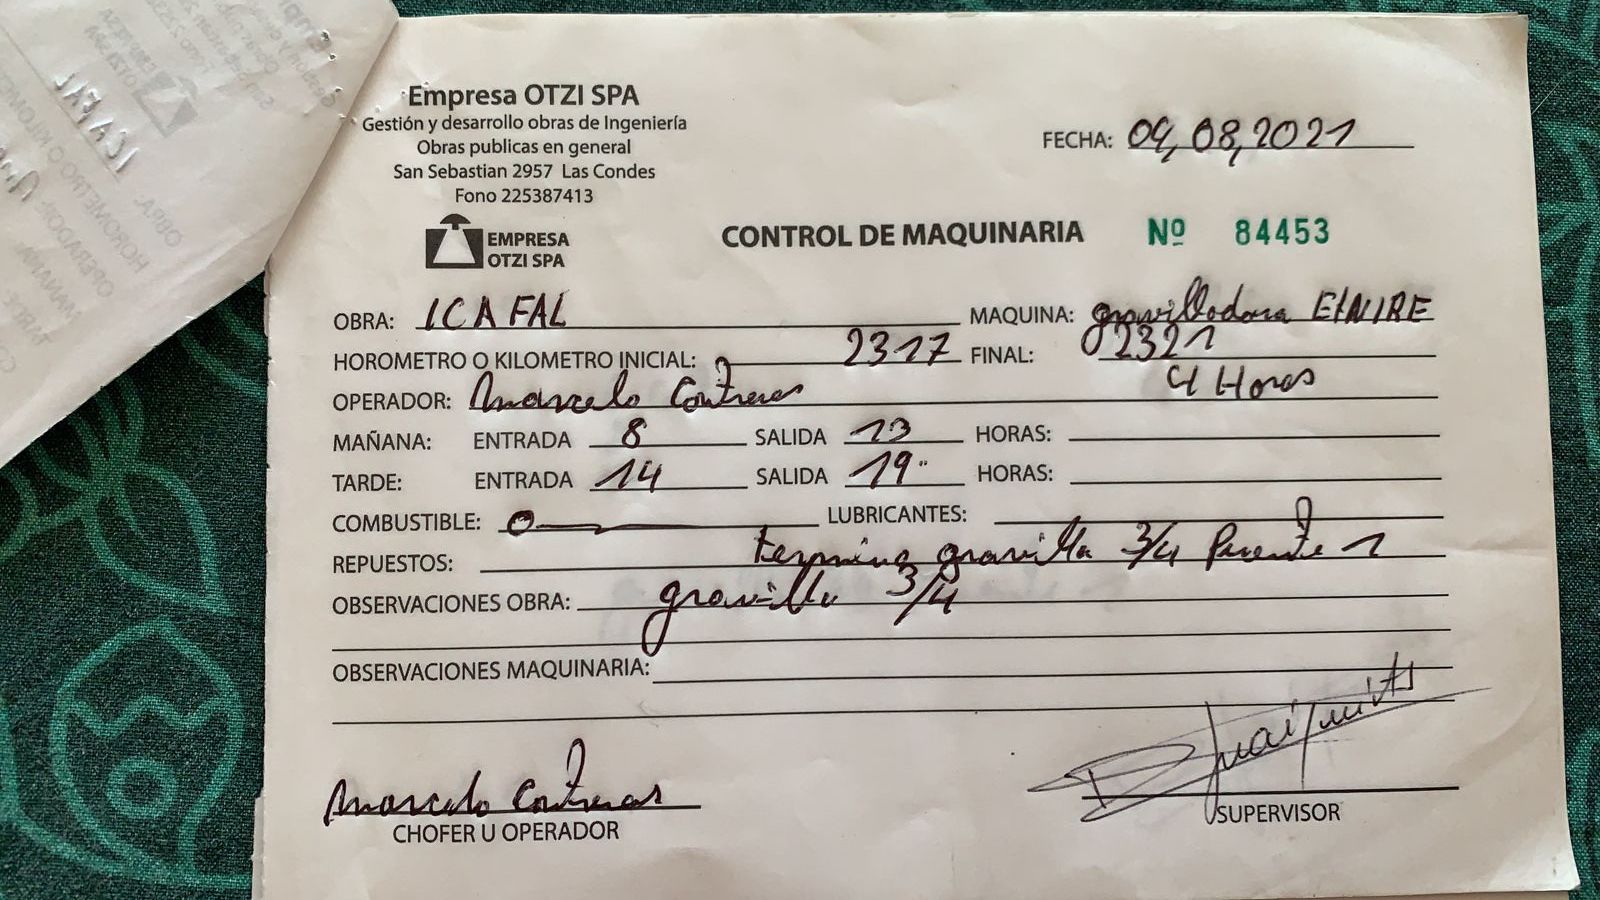 Empresa OTZI SPA
Gestión y desarrollo obras de Ingeniería
Obras publicas en general
San Sebastian 2957 Las Condes
Fono 225387413
FECHA: 04,08,2021
EMPRESA
OTZI SPA
CONTROL DE MAQUINARIA Nº 84453
OBRA: ICAFAL MAQUINA: gravilladora
HOROMETRO O KILOMETRO INICIAL: 2317 FINAL: 2321
4 Horas
OPERADOR: Marcelo Contreras
MAÑANA: ENTRADA 8 SALIDA 13 HORAS:
TARDE: ENTRADA 14 SALIDA 19 HORAS:
COMBUSTIBLE: 0 LUBRICANTES:
REPUESTOS: termino gravilla 3/4 Puente 1
OBSERVACIONES OBRA: gravilla 3/4
OBSERVACIONES MAQUINARIA:
Marcelo Contreras
CHOFER U OPERADOR
SUPERVISOR